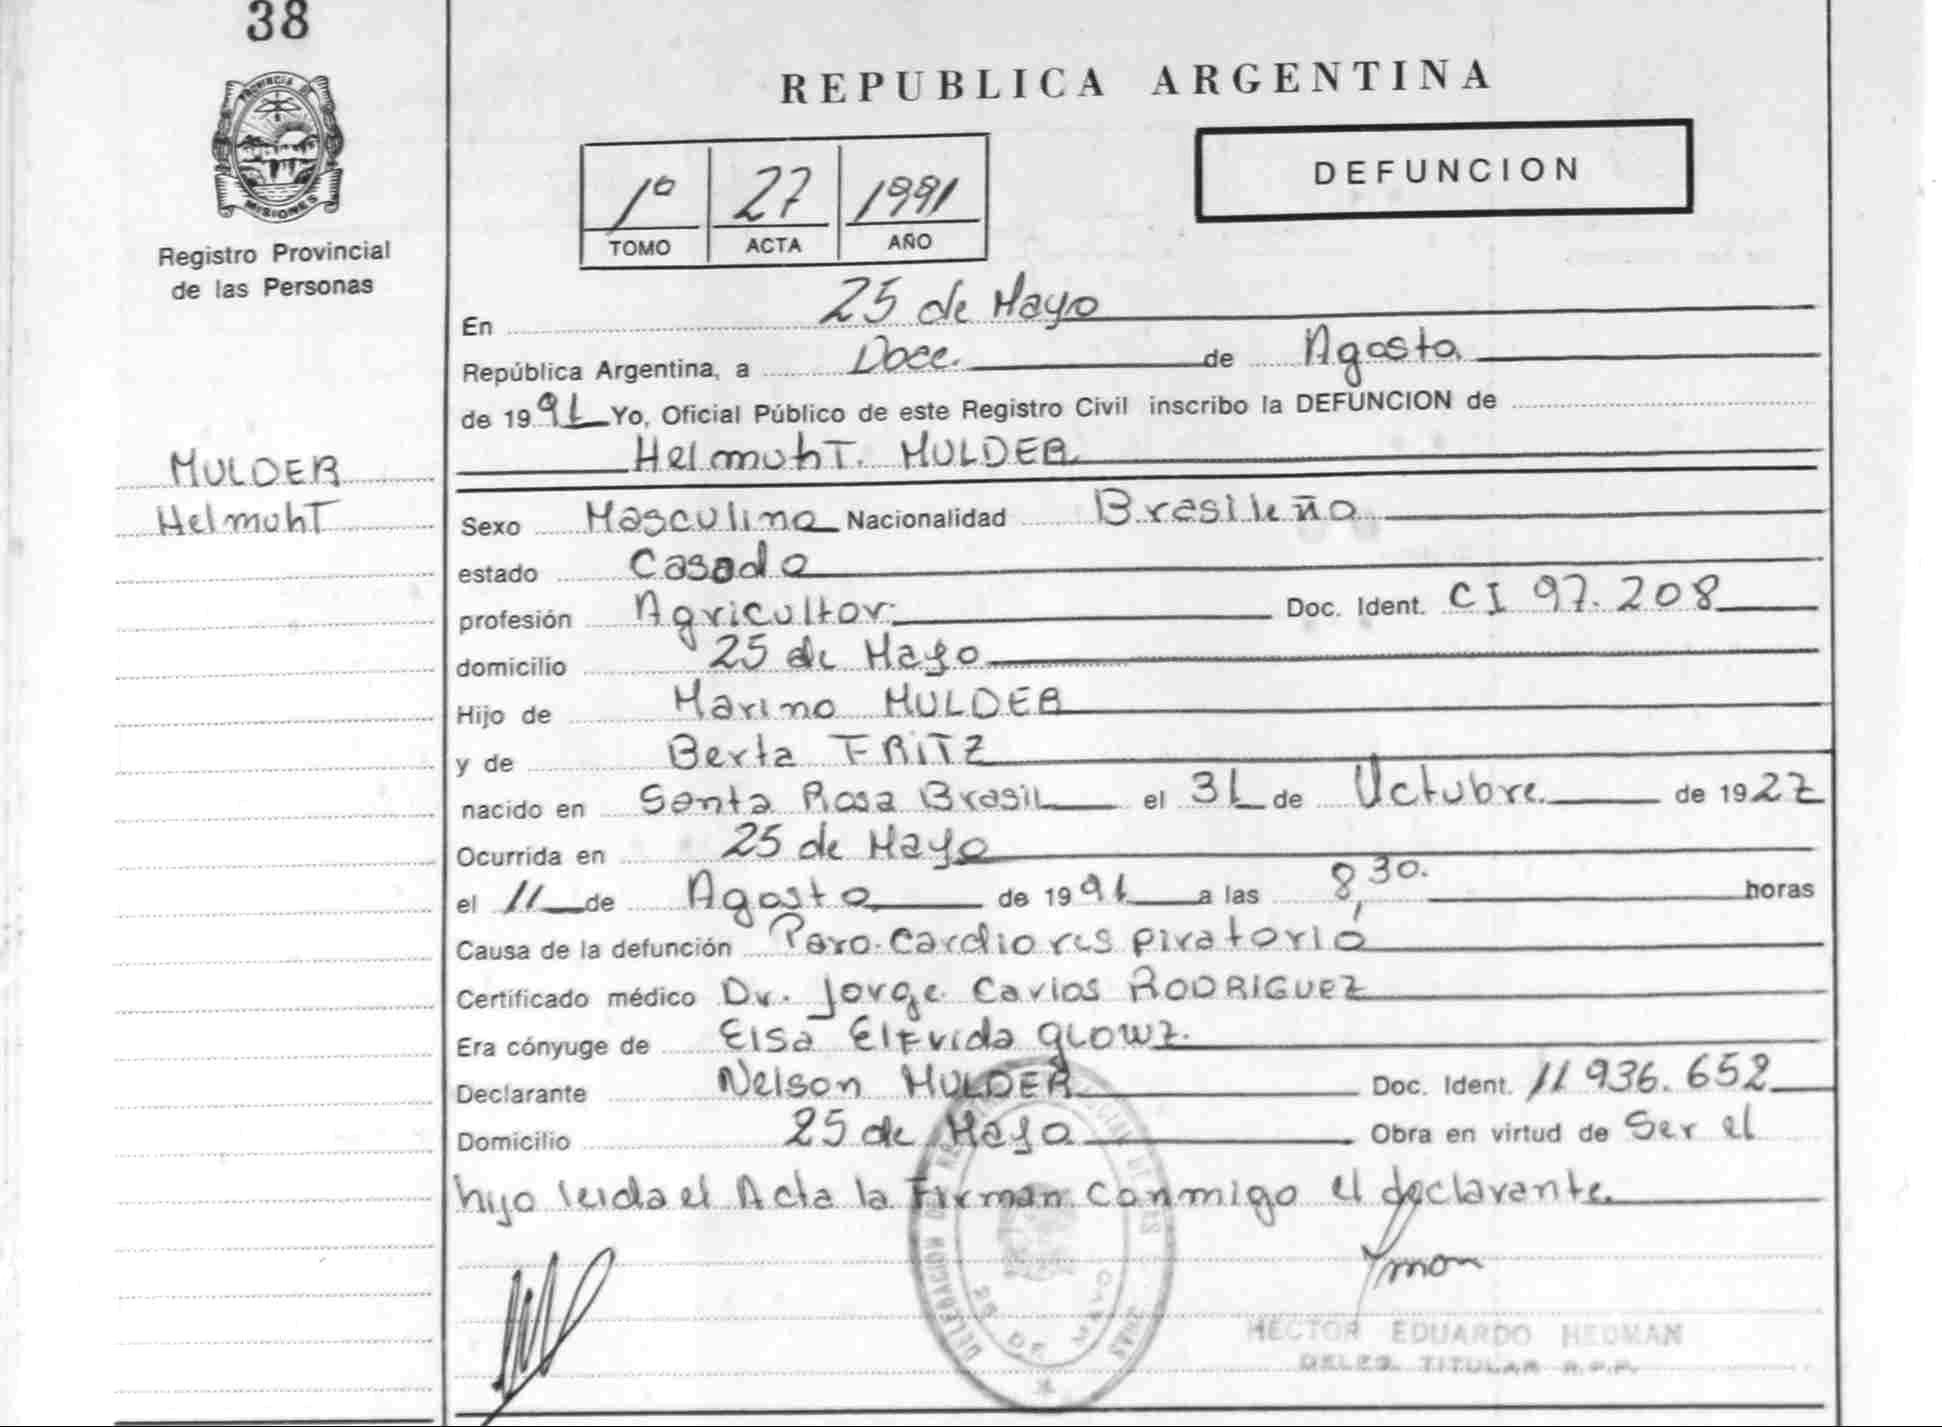 38
PROVINCIA DE
MISIONES
Registro Provincial
de las Personas
MULDER
HelmuhT
REPUBLICA ARGENTINA
DEFUNCION
1º 27 1991
TOMO ACTA AÑO
En 25 de Mayo
República Argentina, a Doce. de Agosto
de 1991 Yo, Oficial Público de este Registro Civil inscribo la DEFUNCION de
HelmuhT. MULDER
Sexo Masculino Nacionalidad Brasileño
estado Casado
profesión Agricultor. Doc. Ident. CI 97.208
domicilio 25 de Mayo
Hijo de Marino MULDER
y de Berta FRiTZ
nacido en Santa Rosa Brasil el 31 de Octubre de 1927
Ocurrida en 25 de Mayo
el 11 de Agosto de 1991 a las 8,30. horas
Causa de la defunción Paro Cardiorespiratorió
Certificado médico Dr. Jorge Carlos RODRIGUEZ
Era cónyuge de Elsa Elfrida GLOWZ.
Declarante Nelson MULDER Doc. Ident. 11 936.652
Domicilio 25 de Mayo Obra en virtud de Ser el
hijo leida el Acta la Firman conmigo el declarante.
25 DE MAYO
HECTOR EDUARDO HEDMAN
DELEG. TITULAR R.P.P.